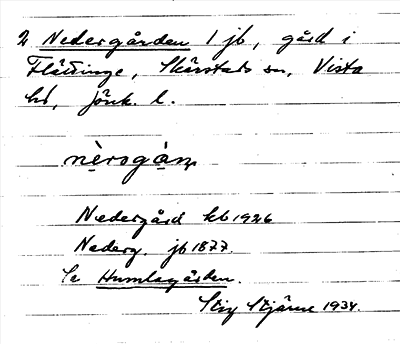 2 Nedergården 1 jb, gård i
Flättinge, Skärstads sn, Vista
hd, Jönk. l.
nèrogán
Nedergård kb 1926
Nederg. jb 1877.
Se Humlegården.
Stig Stjärne 1934.